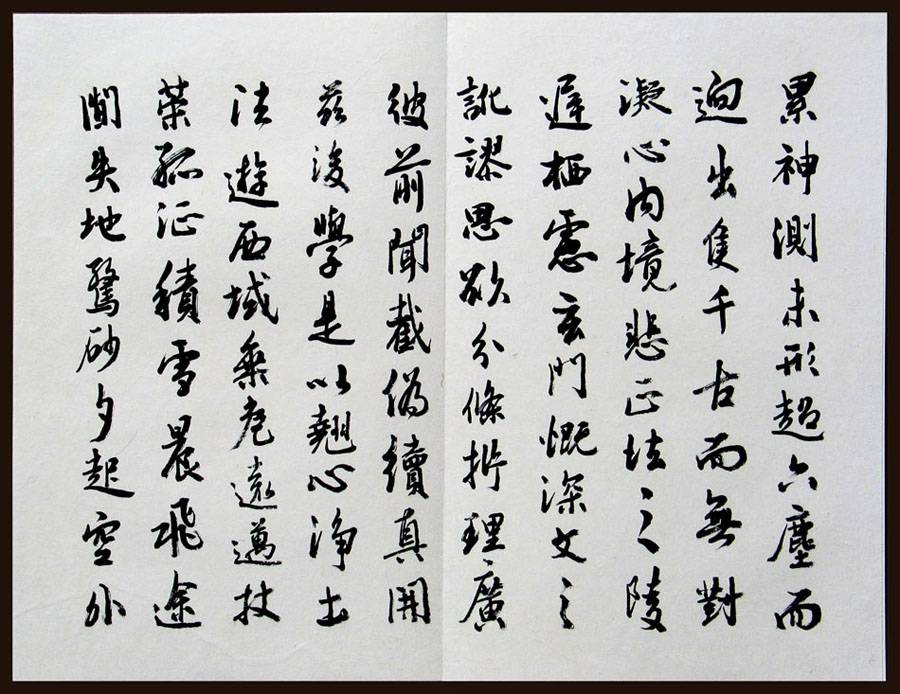 累神測未形超六塵而
迥出隻千古而無對
凝心內境悲正法之陵
遲栖慮玄門慨深文之
訛謬思欲分條析理廣
彼前聞截偽續真開
茲後學是以翹心淨土
法遊西域乘危遠邁杖
策孤征積雪晨飛途
間失地驚砂夕起空外